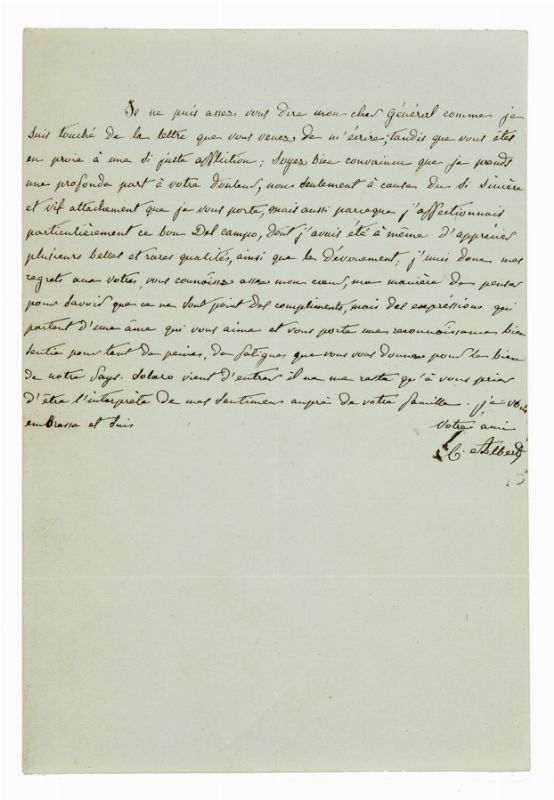 Je ne puis assez vous dire mon cher Général comme je
suis touché de la lettre que vous venez de m'écrire, tandis que vous êtes
en proie à une si juste affliction; soyez bien convaincu que je prends
une profonde part à votre douleur, non seulement à cause du si sincère
et vif attachement que je vous porte, mais aussi parceque j'affectionnais
particulièrement ce bon Del campo, dont j'avais été à même d'apprécier
plusieurs belles et rares qualités, ainsi que le dévouement; j'unis donc mes
regrets aux votres, vous connoissez assez mon cœur, ma manière de penser
pour savoir que ce ne sont point des compliments, mais des expressions qui
partent d'une âme qui vous aime et vous porte une reconnoissance bien
sentie pour tant de peines, de fatigues que vous vous donnez pour le bien
de notre Pays. Solaro vient d'entrer il ne me reste qu'à vous prier
d'être l'interprète de mes sentimens auprès de votre famille. je vous
embrasse et suis votre ami
C. Albert